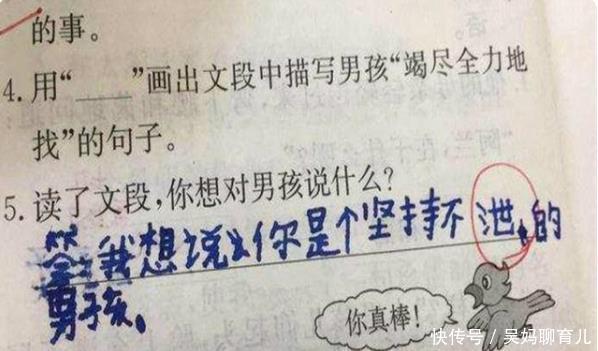 的事。
4.用“____”画出文段中描写男孩“竭尽全力地
找”的句子。
5.读了文段,你想对男孩说什么?
答:我想说:你是个坚持不泄的
男孩。
你真棒!
快传号/吴妈聊育儿